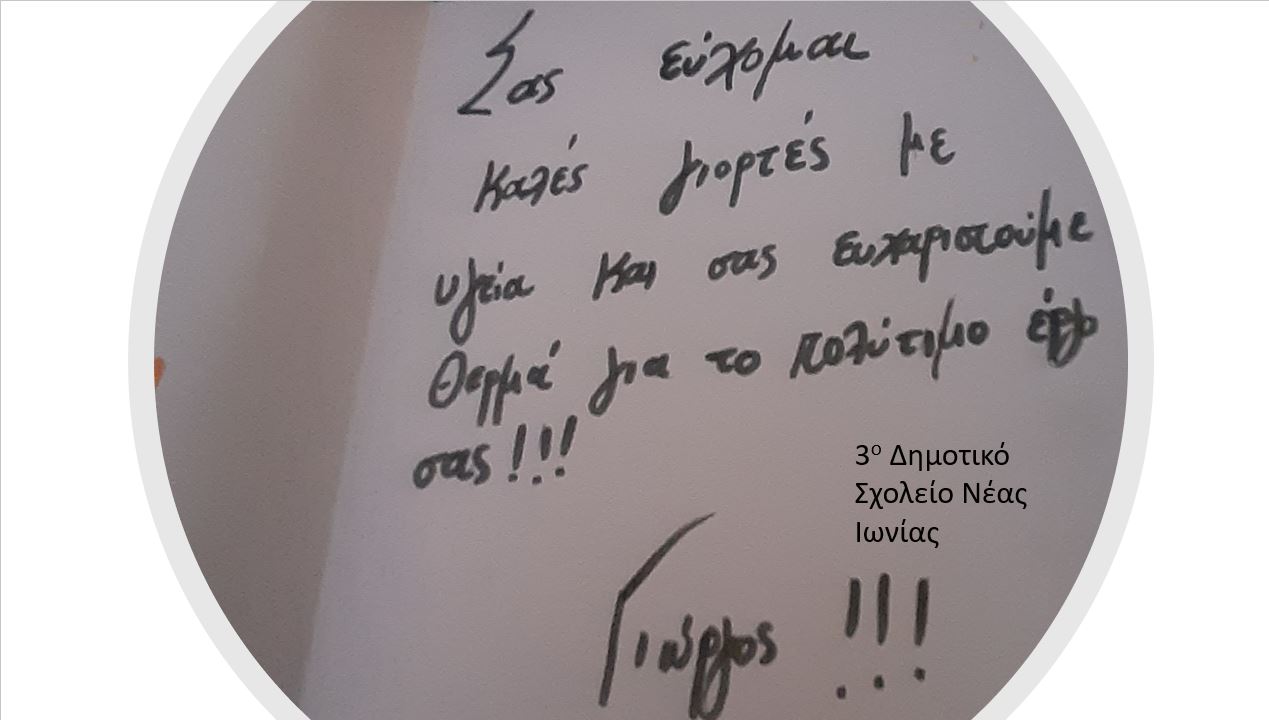 Σας εύχομαι
Καλές γιορτές με
υγεία και σας ευχαριστούμε
Θερμά για το πολύτιμο έργο
σας!!!
3ο Δημοτικό
Σχολείο Νέας
Ιωνίας
Γιώργος !!!